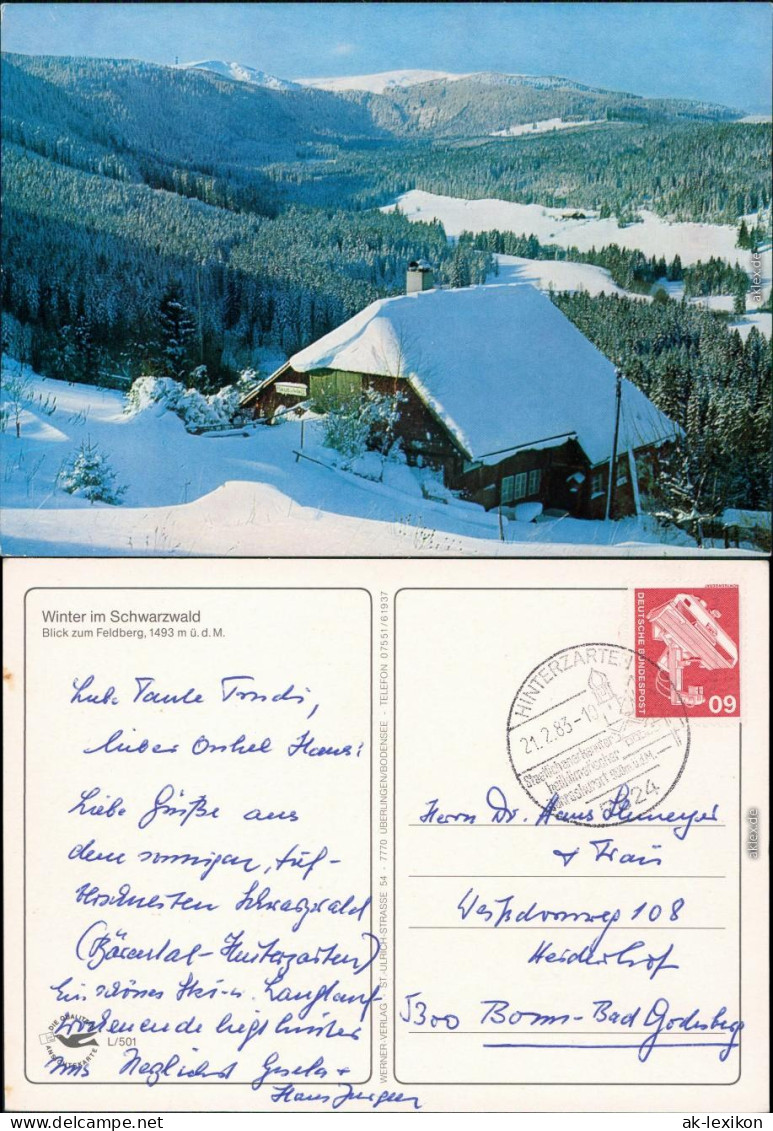 Winter im Schwarzwald
Blick zum Feldberg, 1493 m ü. d. M.
Liebe Tante Trudi,
lieber Onkel Hans!
Liebe Grüße aus
dem sonnigen, tief-
verschneiten Schwarzwald
(Bärental-Hinterzarten)
Ein schönes Ski- u. Langlauf
wochenende liegt hinter
uns Herzlichst Gisela +
Hans Jürgen
DIE QUALITÄTS
ANSICHTSKARTE
L/501
WERNER-VERLAG · ST.-ULRICH-STRASSE 54 · 7770 ÜBERLINGEN/BODENSEE - TELEFON 07551/61937
DEUTSCHE BUNDESPOST
60
HINTERZARTEN
21.2.83-10
Staatlich anerkannter
heilklimatischer
Kurort
7824
Herrn Dr. Hans
+ Frau
108
Heiderhof
5300 Bonn-Bad Godesberg
aklex.de
aklex.de
ak-lexikon